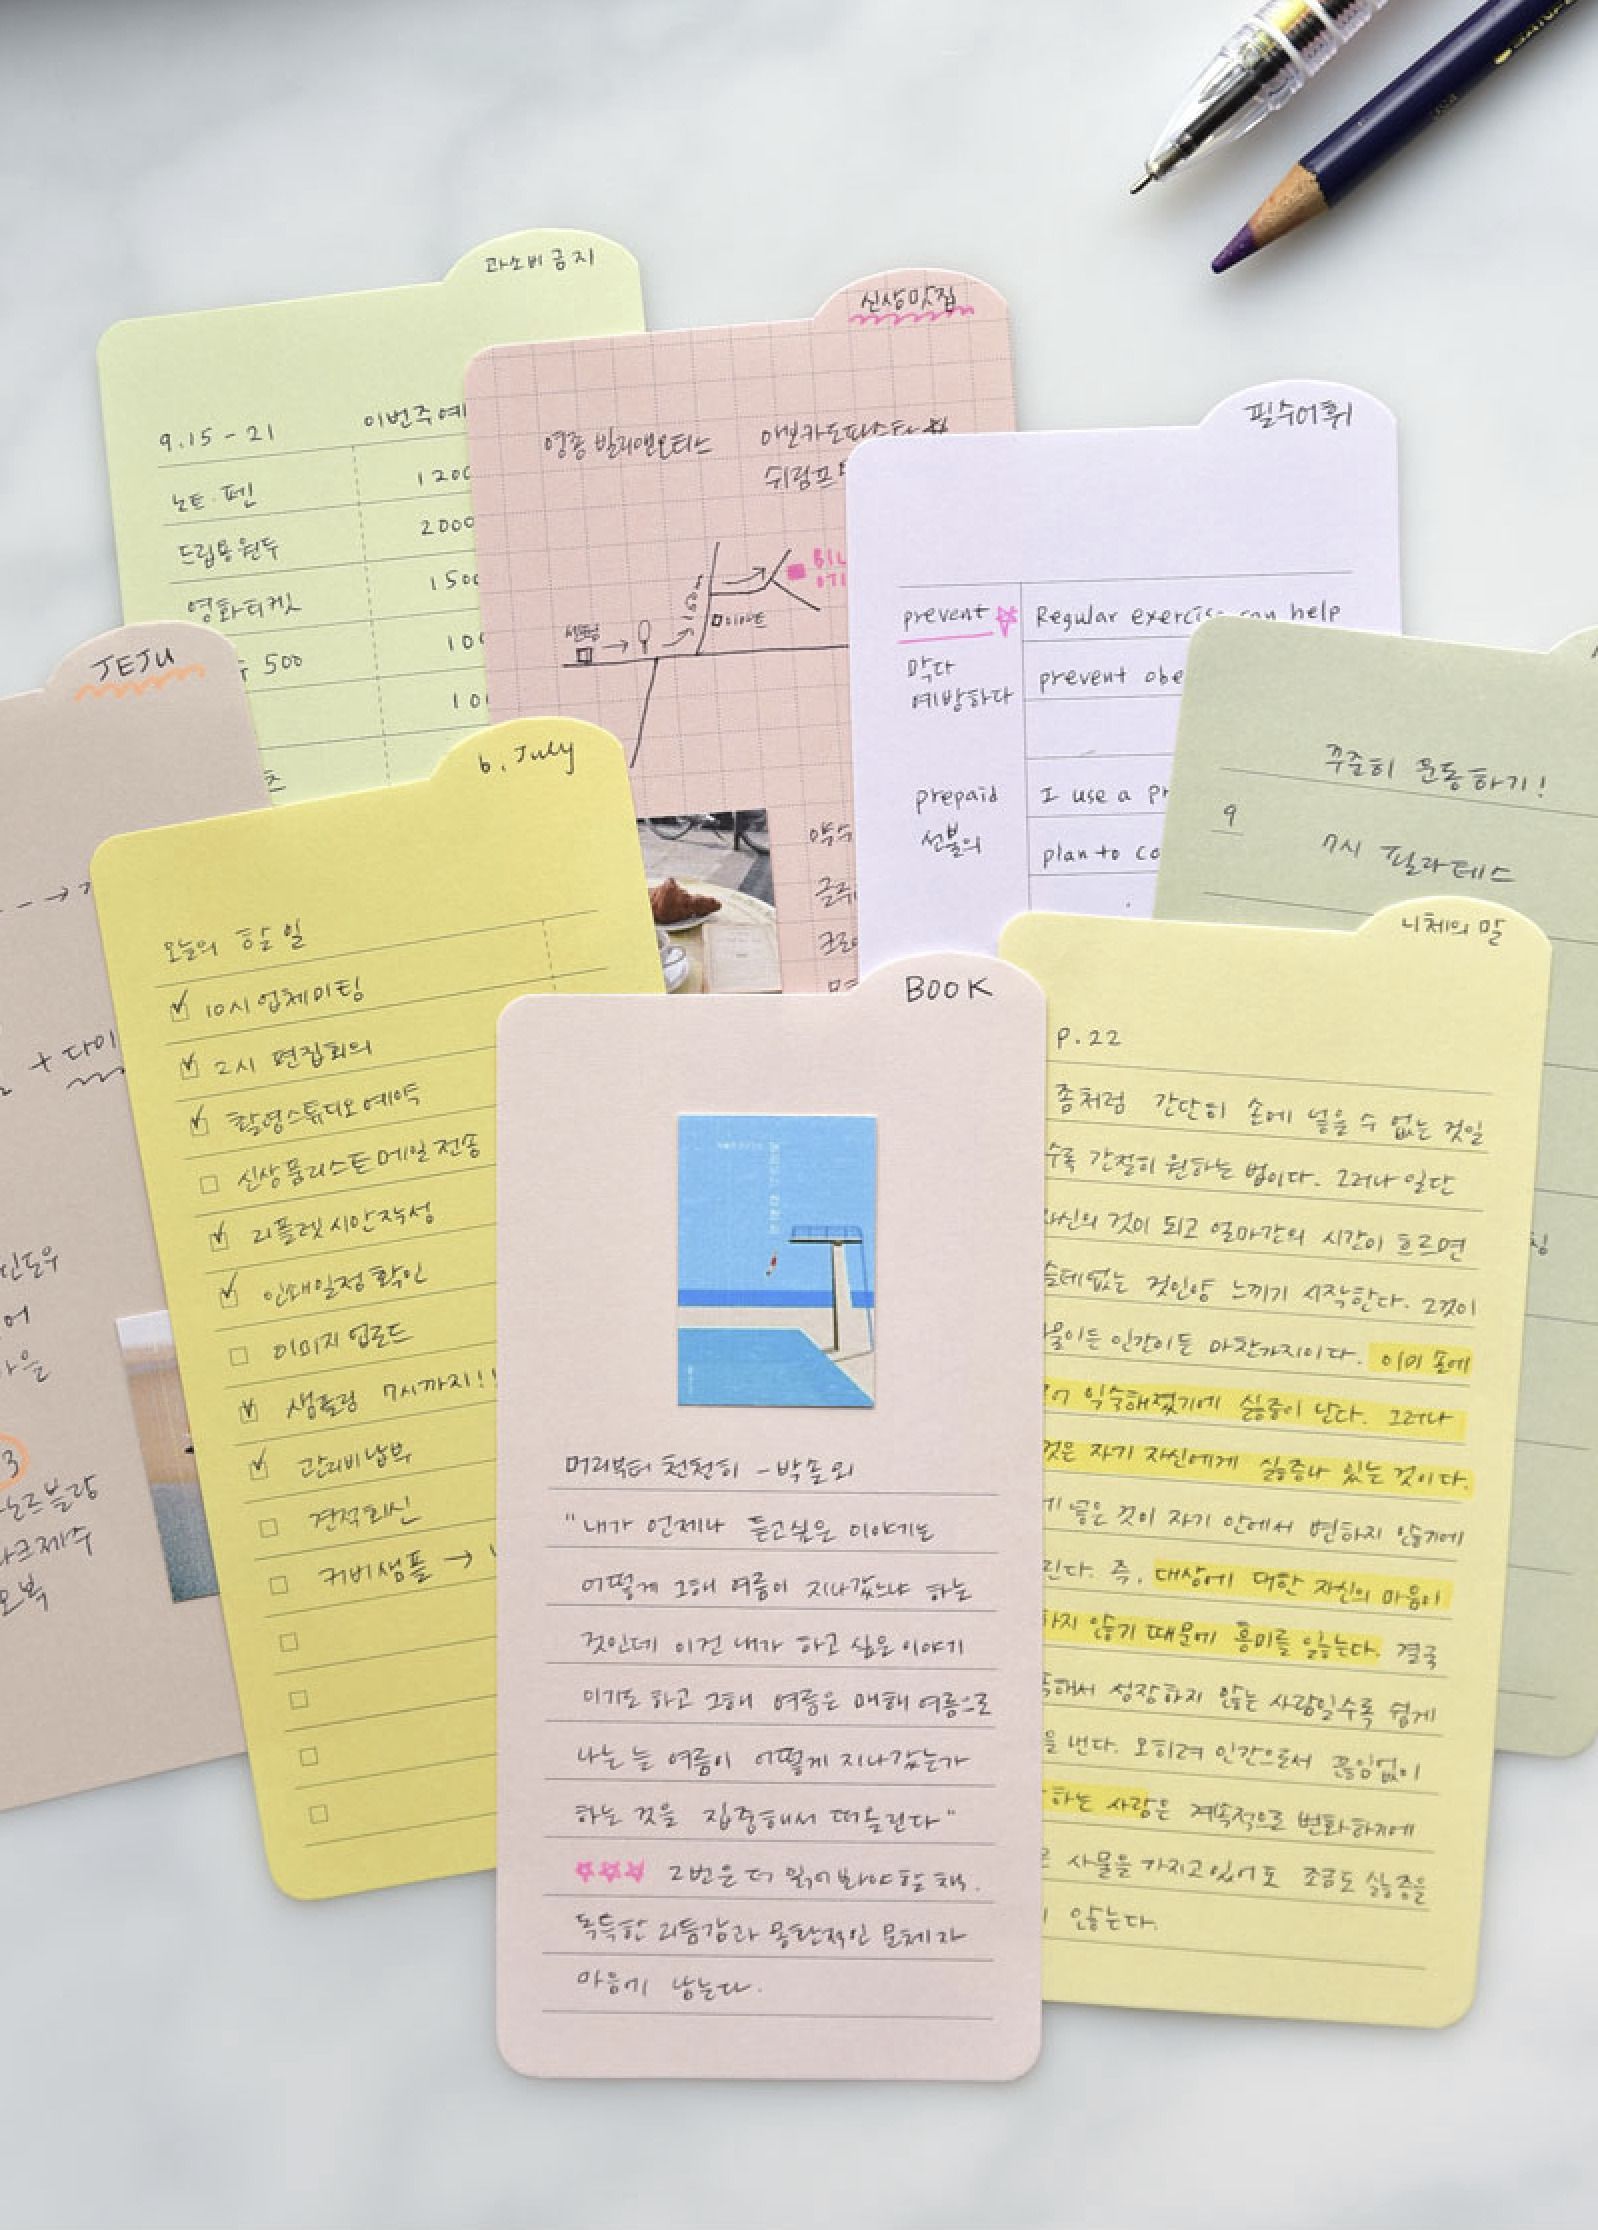 과소비금지
9.15 - 21 이번주예
노트·펜 1200
드립용원두 2000
영화티켓 1500
500 100
100
신상맛집
영종 빌리앤오티스 아보카도파스타
쉬림프
BIL
OTI
필수어휘
prevent Regular exercise can help
막다
예방하다
prevent obe
prepaid I use a pr
선불의
plan to co
꾸준히 운동하기!
9
7시 필라테스
JEJU
+ 다이
6. July
오늘의 할 일
10시 업체미팅
2시 편집회의
촬영스튜디오예약
신상품리스트메일전송
리플렛 시안작성
인쇄일정확인
이미지 업로드
샘플링 7시까지!!
관리비납부
견적회신
커버샘플 →
BOOK
머리부터 천천히 - 박솔뫼
"내가 언제나 듣고싶은 이야기는
어떻게 그해 여름이 지나갔느냐 하는
것인데 이건 내가 하고 싶은 이야기
이기도 하고 그해 여름은 매해 여름으로
나는 늘 여름이 어떻게 지나갔는가
하는 것을 집중해서 떠올린다"
2번은 더 읽어봐야할 책.
독특한 리듬감과 몽환적인 문체가
마음에 남는다.
니체의 말
P.22
좀처럼 간단히 손에 넣을 수 없는 것일
수록 간절히 원하는 법이다. 그러나 일단
자신의 것이 되고 얼마간의 시간이 흐르면
쓸데없는 것인양 느끼기 시작한다. 그것이
물이든 인간이든 마찬가지이다. 이미 손에
익숙해졌기에 싫증이 난다. 그러나
것은 자기 자신에게 싫증나 있는 것이다.
넣은 것이 자기 안에서 변하지 않기에
린다. 즉, 대상에 대한 자신의 마음이
하지 않기 때문에 흥미를 잃는다. 결국
해서 성장하지 않는 사람일수록 쉽게
을 낸다. 오히려 인간으로서 끊임없이
하는 사람은 계속적으로 변화하기에
사물을 가지고 있어도 조금도 싫증을
않는다.